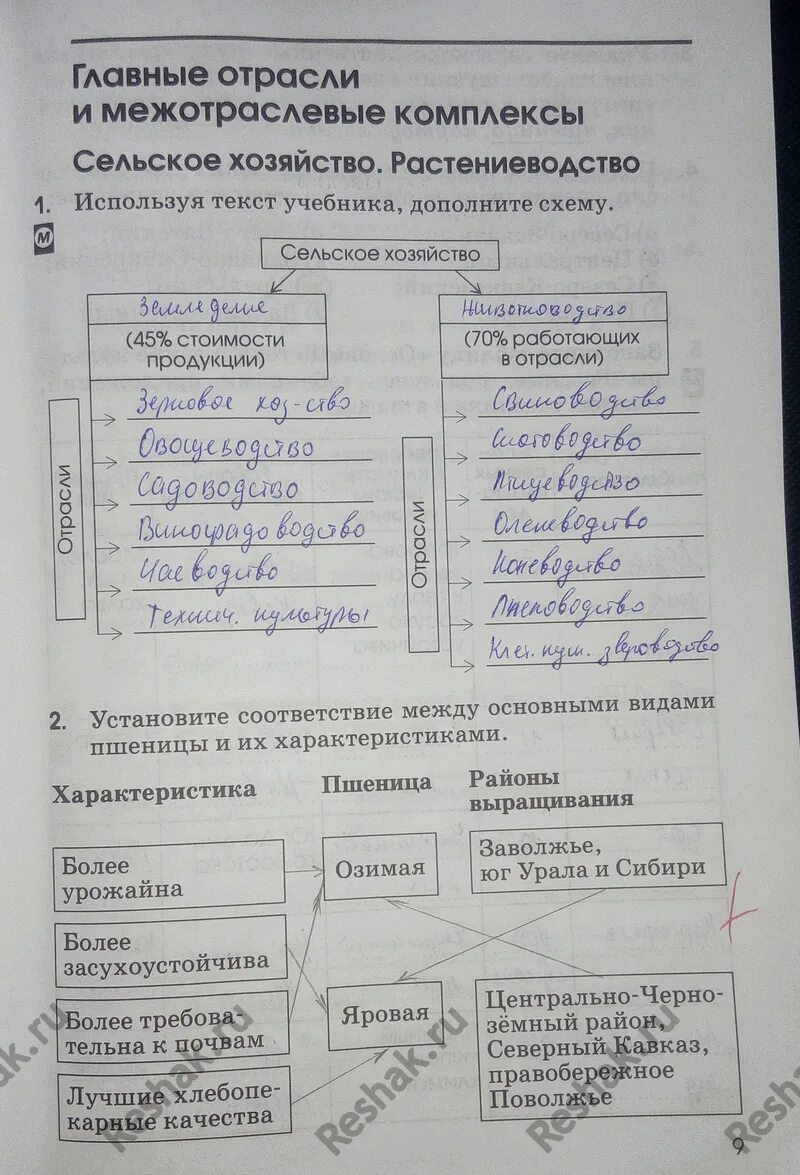 Главные отрасли
и межотраслевые комплексы
Сельское хозяйство. Растениеводство
1. Используя текст учебника, дополните схему.
М
Сельское хозяйство
Земледелие
(45% стоимости
продукции)
Животноводство
(70% работающих
в отрасли)
Отрасли
Зерновое хоз-ство
Овощеводство
Садоводство
Виноградоводство
Чаеводство
Технич. культуры
Отрасли
Свиноводство
Скотоводство
Птицеводство
Оленеводство
Коневодство
Пчеловодство
Клет. пуш. звероводство
2. Установите соответствие между основными видами
пшеницы и их характеристиками.
Характеристика
Пшеница
Районы
выращивания
Более
урожайна
Озимая
Заволжье,
юг Урала и Сибири
Более
засухоустойчива
Более требова-
тельна к почвам
Яровая
Центрально-Черно-
зёмный район,
Северный Кавказ,
правобережное
Поволжье
Лучшие хлебопе-
карные качества
9
Reshak.ru
Reshak.ru
Reshak.ru